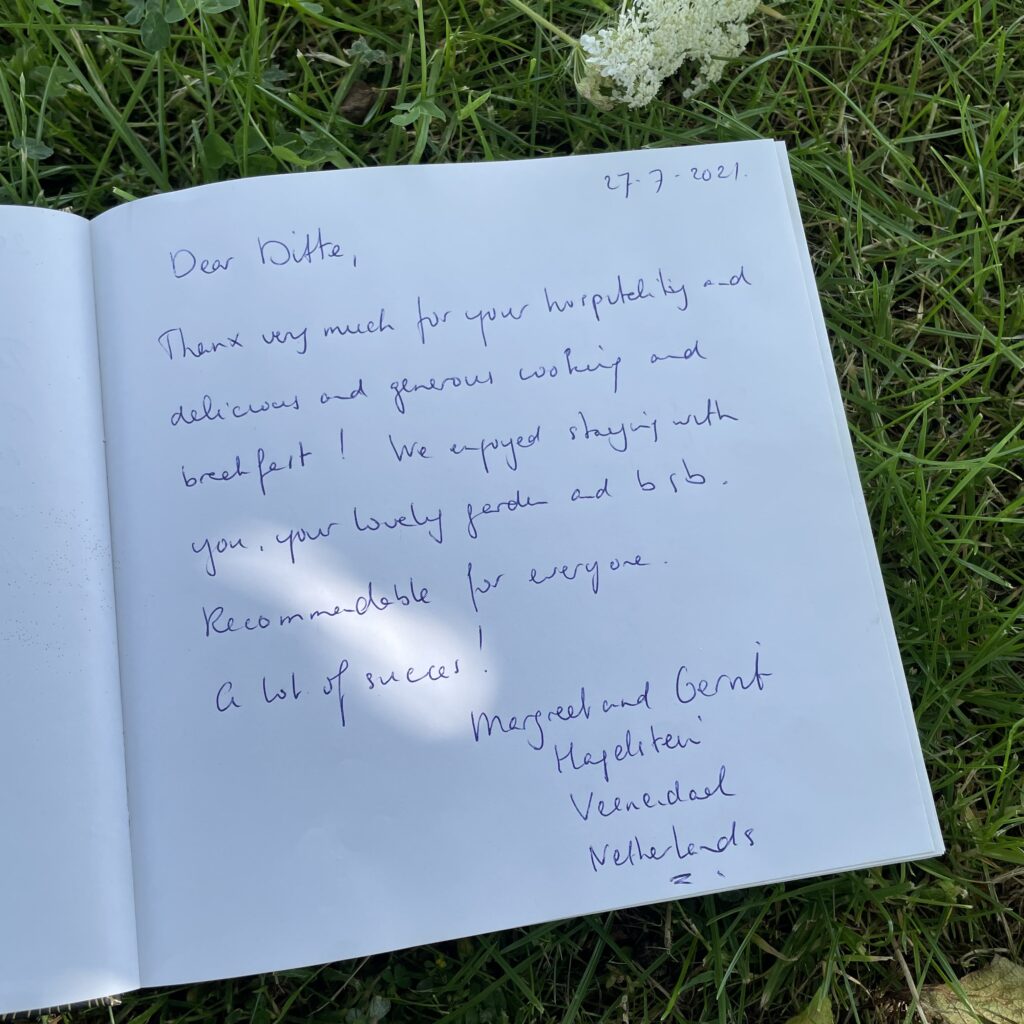 27-7-2021.
Dear Ditte,
Thanx very much for your hospitality and
delicious and generous cooking and
breakfast! We enjoyed staying with
you, your lovely garden and b&b.
Recommendable for everyone.
A lot of succes!
Margreet and Gerrit
Hagelstein
Veenendaal
Netherlands